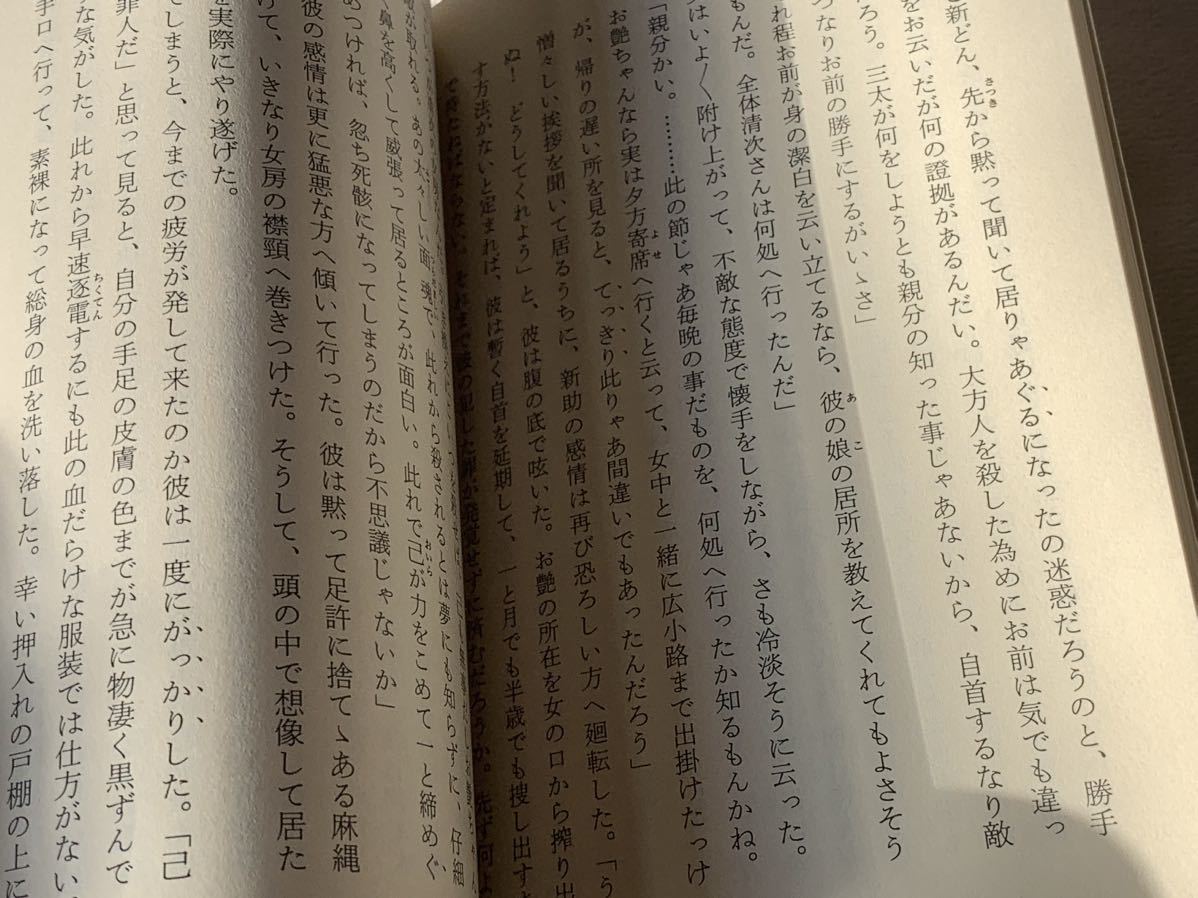 新どん、先から黙って聞いて居りゃあぐるになったの迷惑だろうのと、勝手
をお云いだが何の證拠があるんだい。大方人を殺した為めにお前は気でも違っ
ろう。三太が何をしようとも親分の知った事じゃあないから、自首するなり敵
つなりお前の勝手にするがいゝさ」
れ程お前が身の潔白を云い立てるなら、彼の娘の居所を教えてくれてもよさそう
もんだ。全体清次さんは何処へ行ったんだ」
はいよ〳〵附け上がって、不敵な態度で懐手をしながら、さも冷淡そうに云った。
「親分かい。………此の節じゃあ毎晩の事だものを、何処へ行ったか知るもんかね。
お艶ちゃんなら実は夕方寄席へ行くと云って、女中と一緒に広小路まで出掛けたっけ
が、帰りの遅い所を見ると、てっきり此りゃあ間違いでもあったんだろう」
憎々しい挨拶を聞いて居るうちに、新助の感情は再び恐ろしい方へ廻転した。「う
ぬ！どうしてくれよう」と、彼は腹の底で呟いた。お艶の所在を女の口から搾り出
す方法がないと定まれば、彼は暫く自首を延期して、一と月でも半歳でも捜し出す
ばならない。それまで彼の犯した罪が発覚せずに済むだろうか。先ず何よ
が取れる。あの太々しい面魂で、此れから殺されるとは夢にも知らずに、仔細
鼻を高くして威張って居るところが面白い。此れで己が力をこめて一と締めぐ
めつければ、忽ち死骸になってしまうのだから不思議じゃないか」
彼の感情は更に猛悪な方へ傾いて行った。彼は黙って足許に捨てゝある麻縄
けて、いきなり女房の襟頸へ巻きつけた。そうして、頭の中で想像して居た
を実際にやり遂げた。
てしまうと、今までの疲労が発して来たのか彼は一度にがっかりした。「己
罪人だ」と思って見ると、自分の手足の皮膚の色までが急に物凄く黒ずんで
な気がした。此れから早速逐電するにも此の血だらけな服装では仕方がない
手口へ行って、素裸になって総身の血を洗い落した。幸い押入れの戸棚の上に